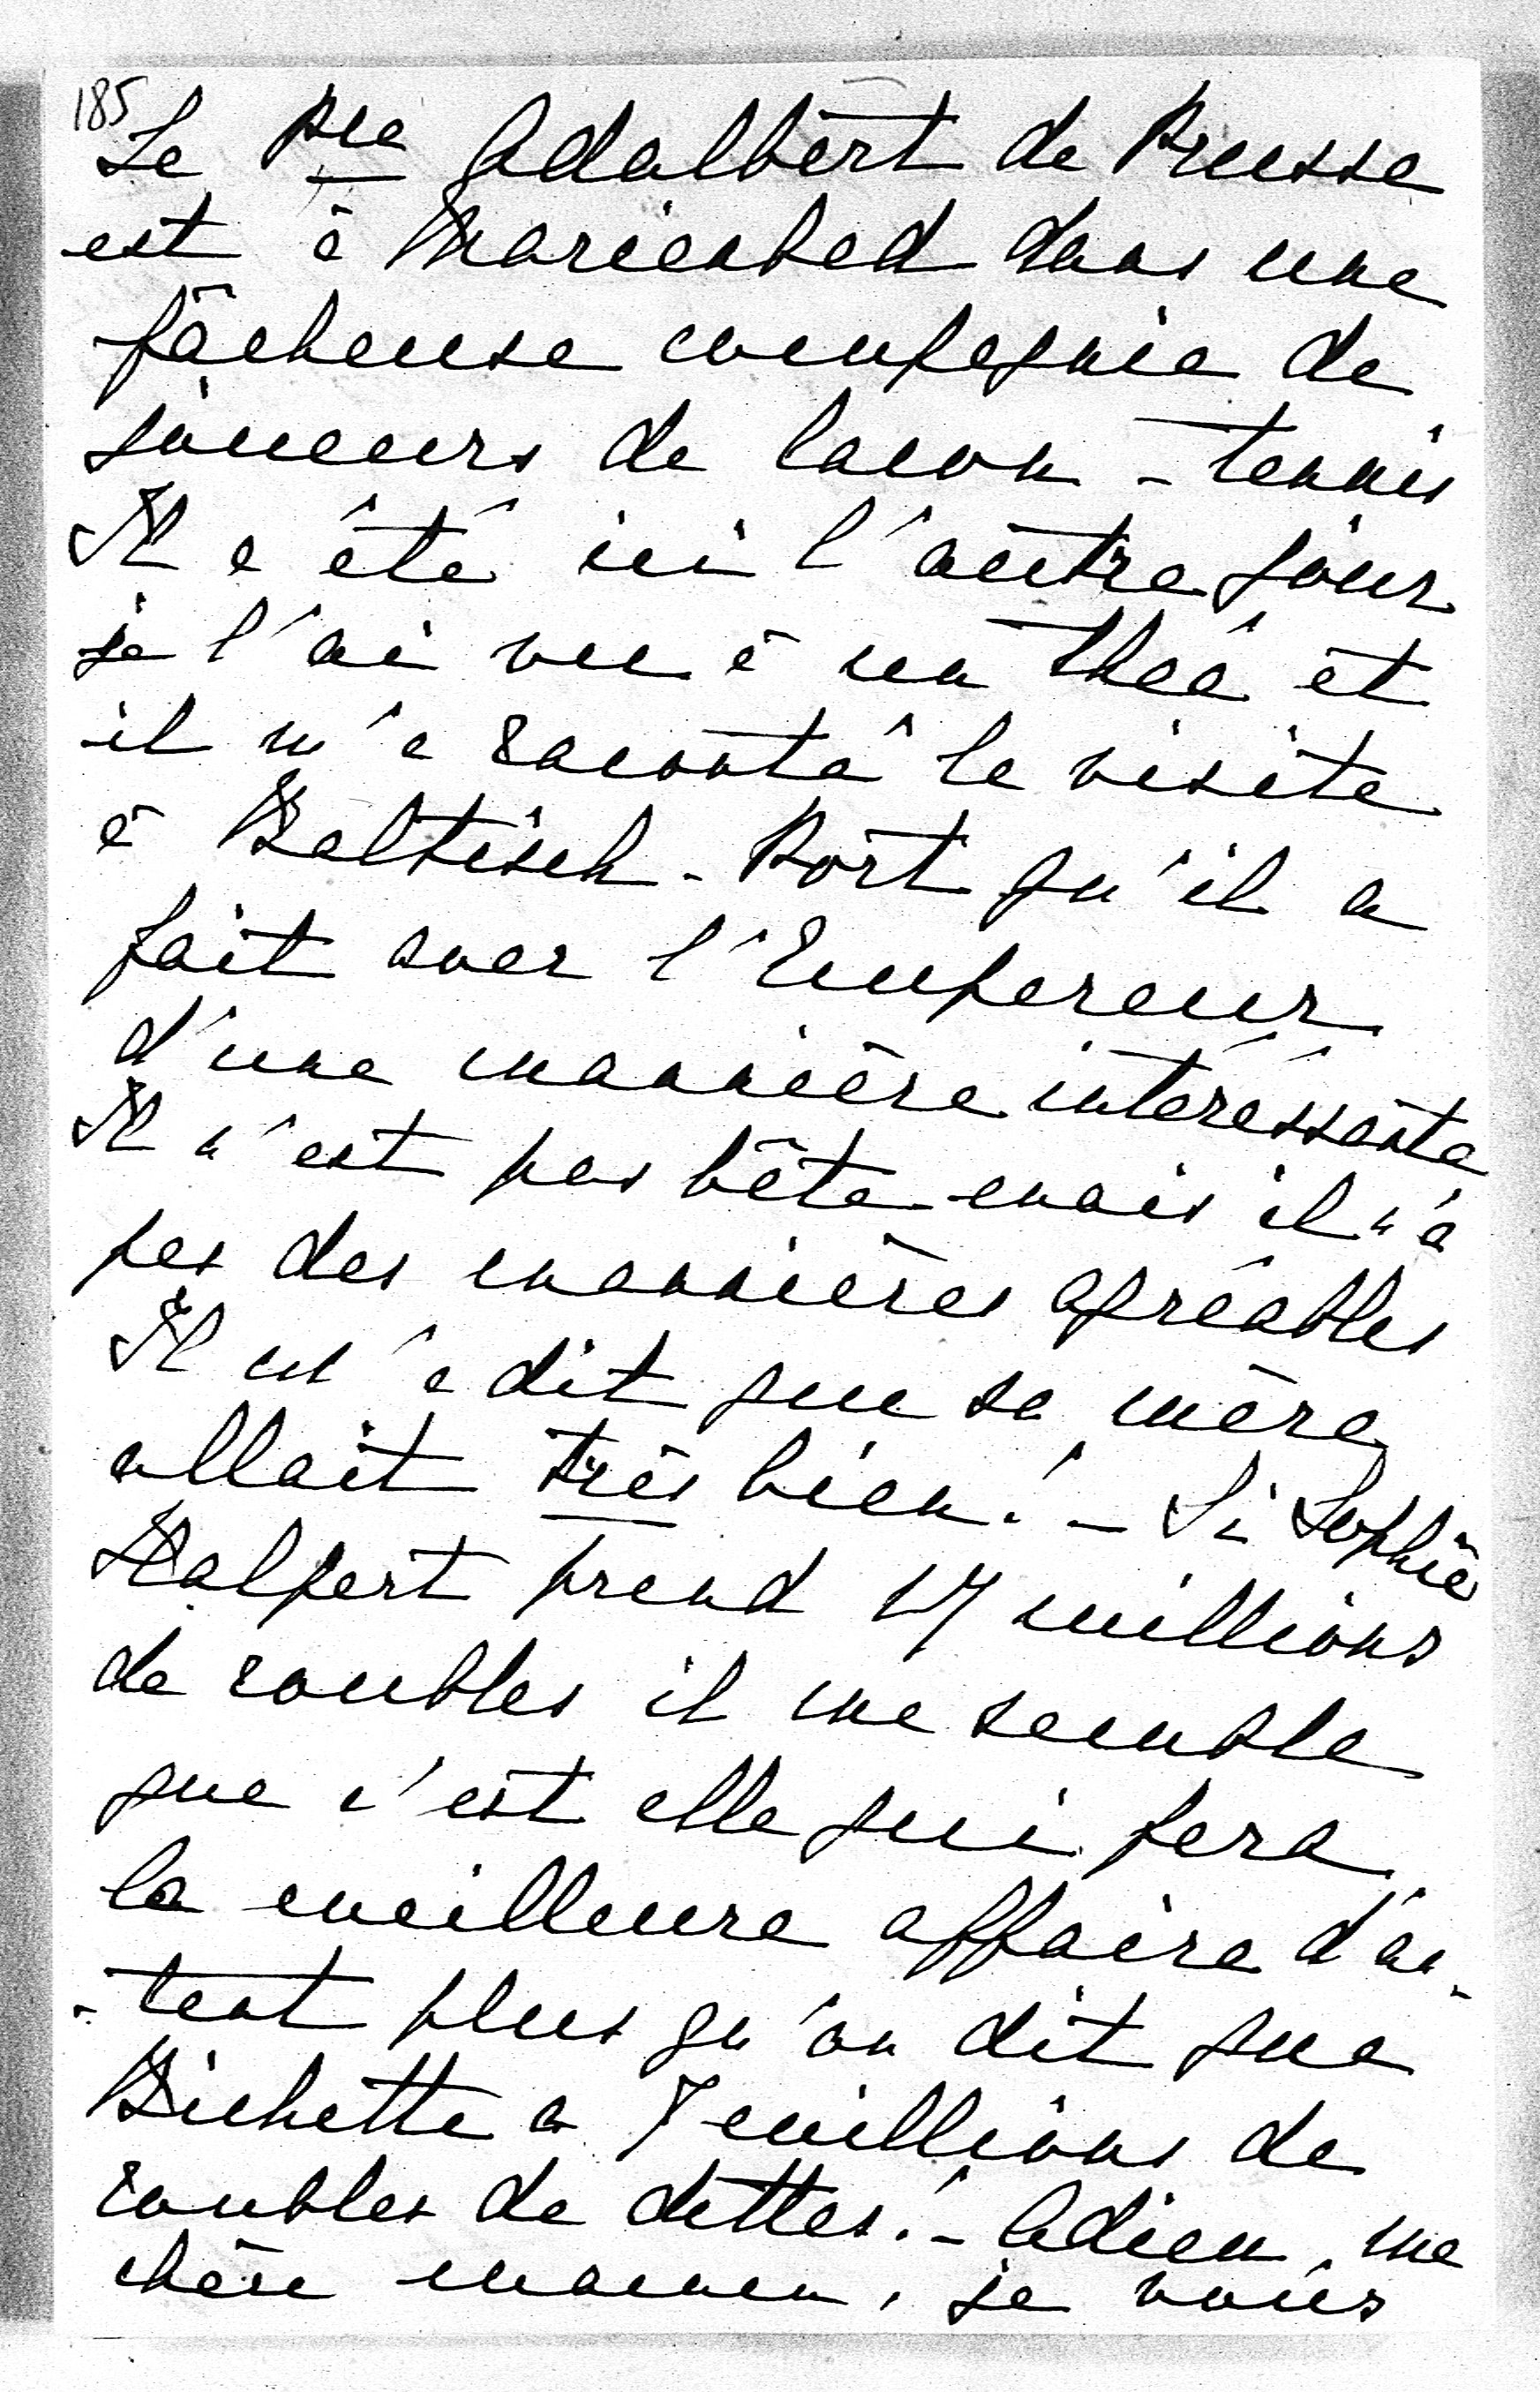 185
Le Pce Adalbert de Prusse
est à Marienbad dans une
fâcheuse compagnie de
joueurs de lawn-tennis
Il a été ici l'autre jour
je l'ai vu à un thée et
il m'a raconté la visite
à Baltisch-Port qu'il a
fait avec l'Empereur
d'une mannière intéressante
Il n'est pas bête mais il n'a
pas des mannières agréables
Il m'a dit que sa mère
allait très bien! - Si Sophie
Halpert prend 17 millions
de roubles il me semble
que c'est elle qui fera
la meilleure affaire d'au-
-tant plus qu'on dit que
Bichette a 7 millions de
roubles de dettes! - Adieu, ma
chère maman, je vous